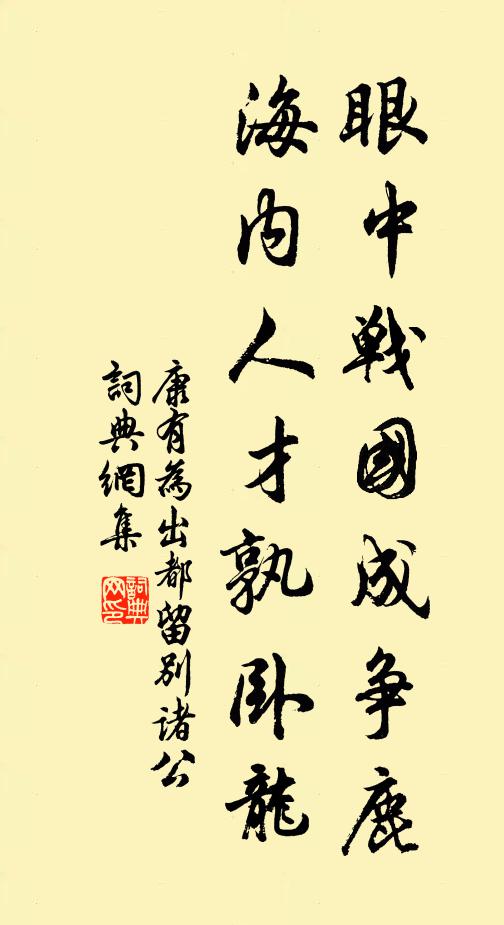 眼中戰國成争鹿
海内人才孰卧龍
康有為出都留别諸公
詞典網集
詞典
网印